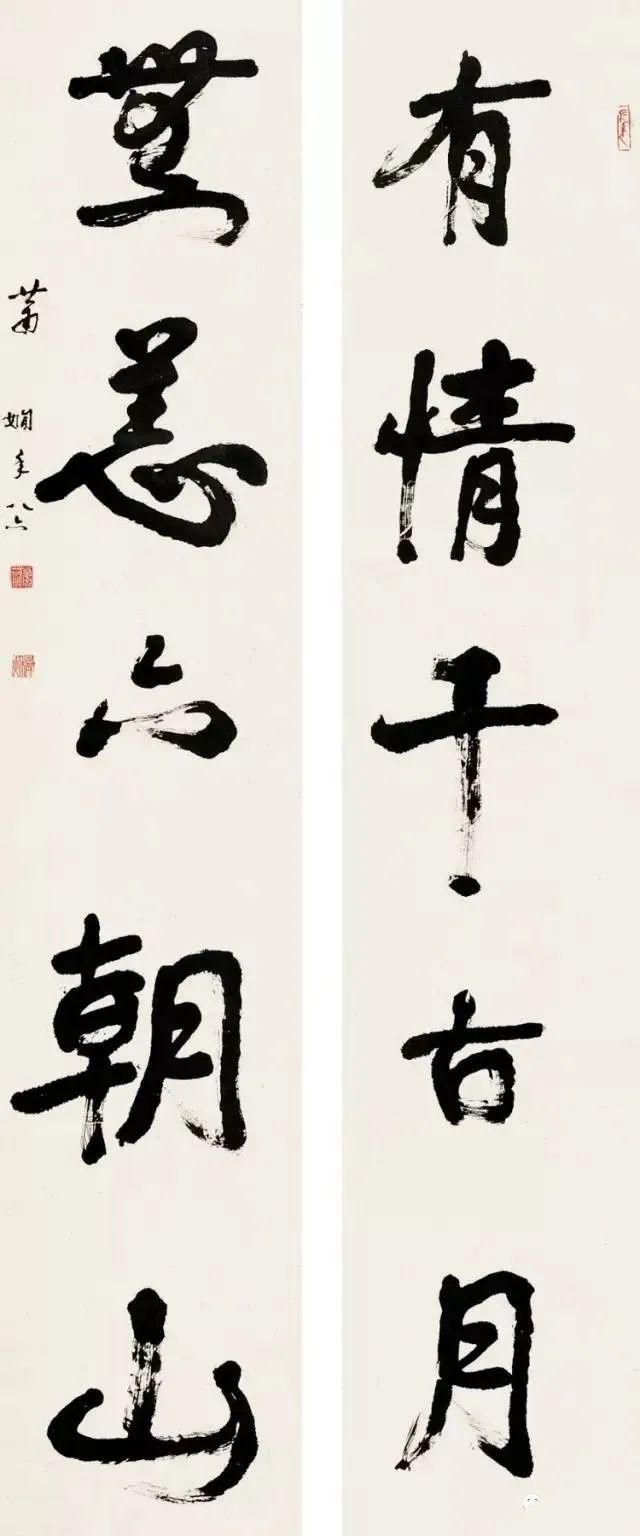 有情千古月
無恙六朝山
蕭嫻年八六